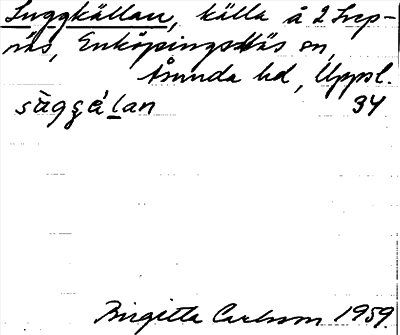 Suggkällan, källa å 2 Svep-
näs, Enköpings-Näs sn,
Åsunda hd, Uppsl.
sùggḉlan 34
Birgitta Carlsson 1959.